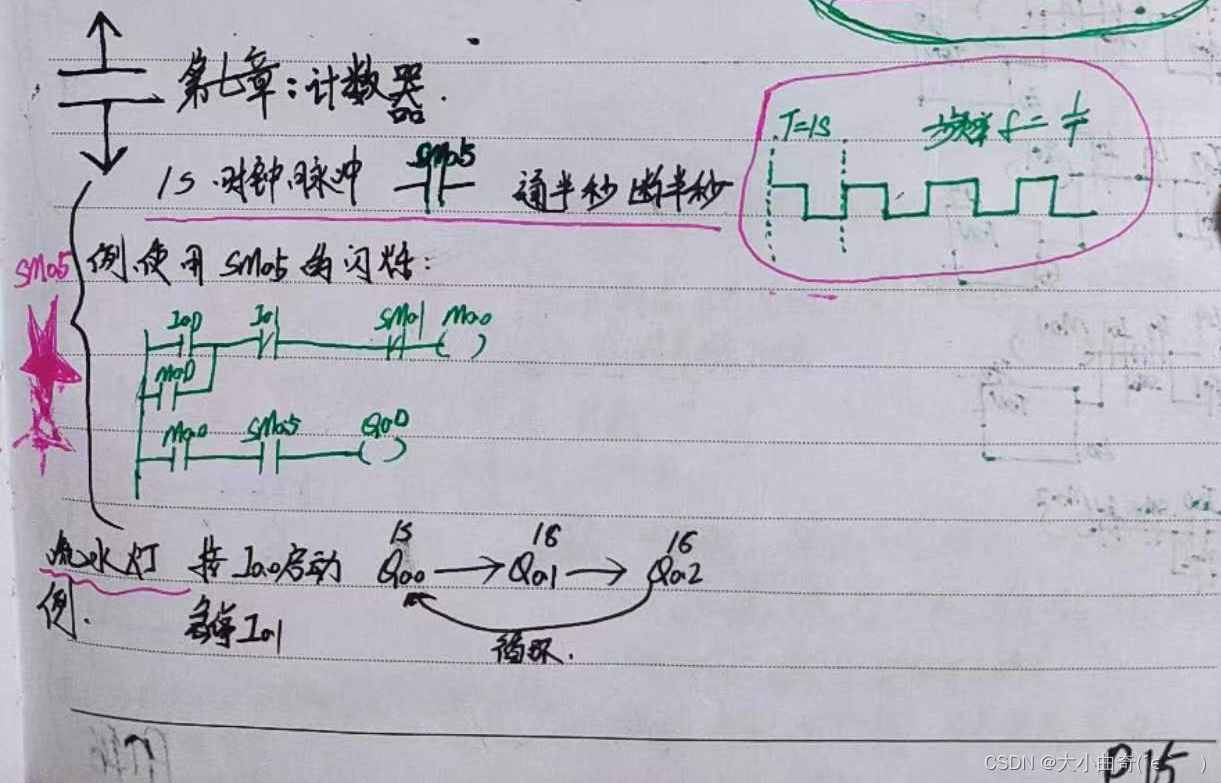 第七章:计数器.
T=1S 频率 f=1/T
1S 时钟脉冲 SM0.5 通半秒断半秒
SM0.5
例.使用 SM0.5 的闪烁:
I0.0 I0.1 SM0.1 M0.0
M0.0
M0.0 SM0.5 Q0.0
1S 1S 1S
流水灯 按 I0.0启动 Q0.0 → Q0.1 → Q0.2
例. 急停 I0.1
循环.
P15
CSDN @大小曲奇